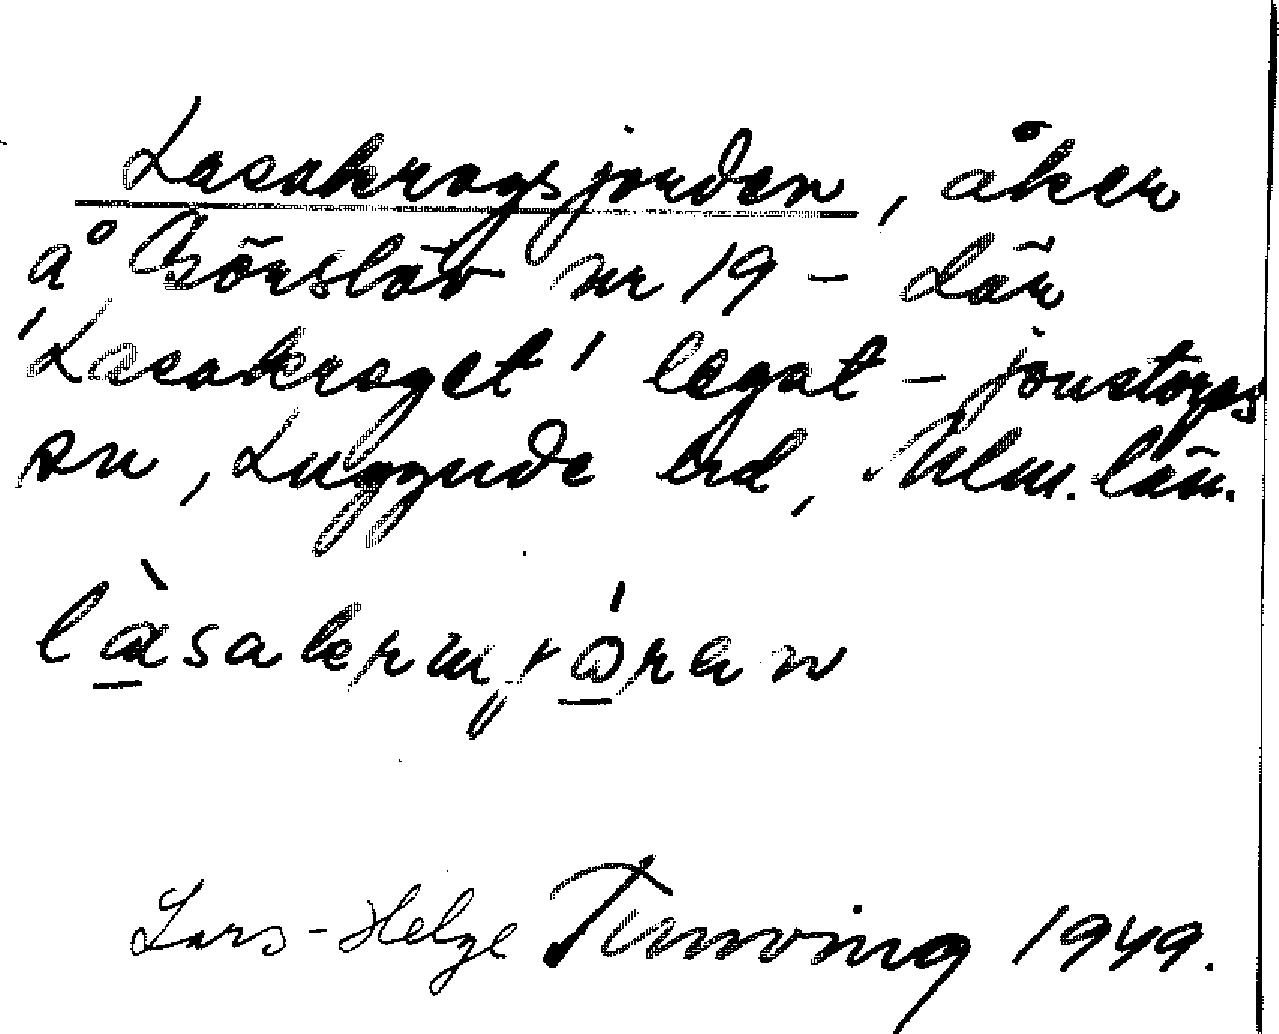 Lasakrogsjorden, åker
å Görslöv nr 19 – där
'Lasakroget' legat – Jonstorps
sn, Luggude hd, Mlm. län.
làsakrɷgsjóran
Lars-Helge Tennving 1949.